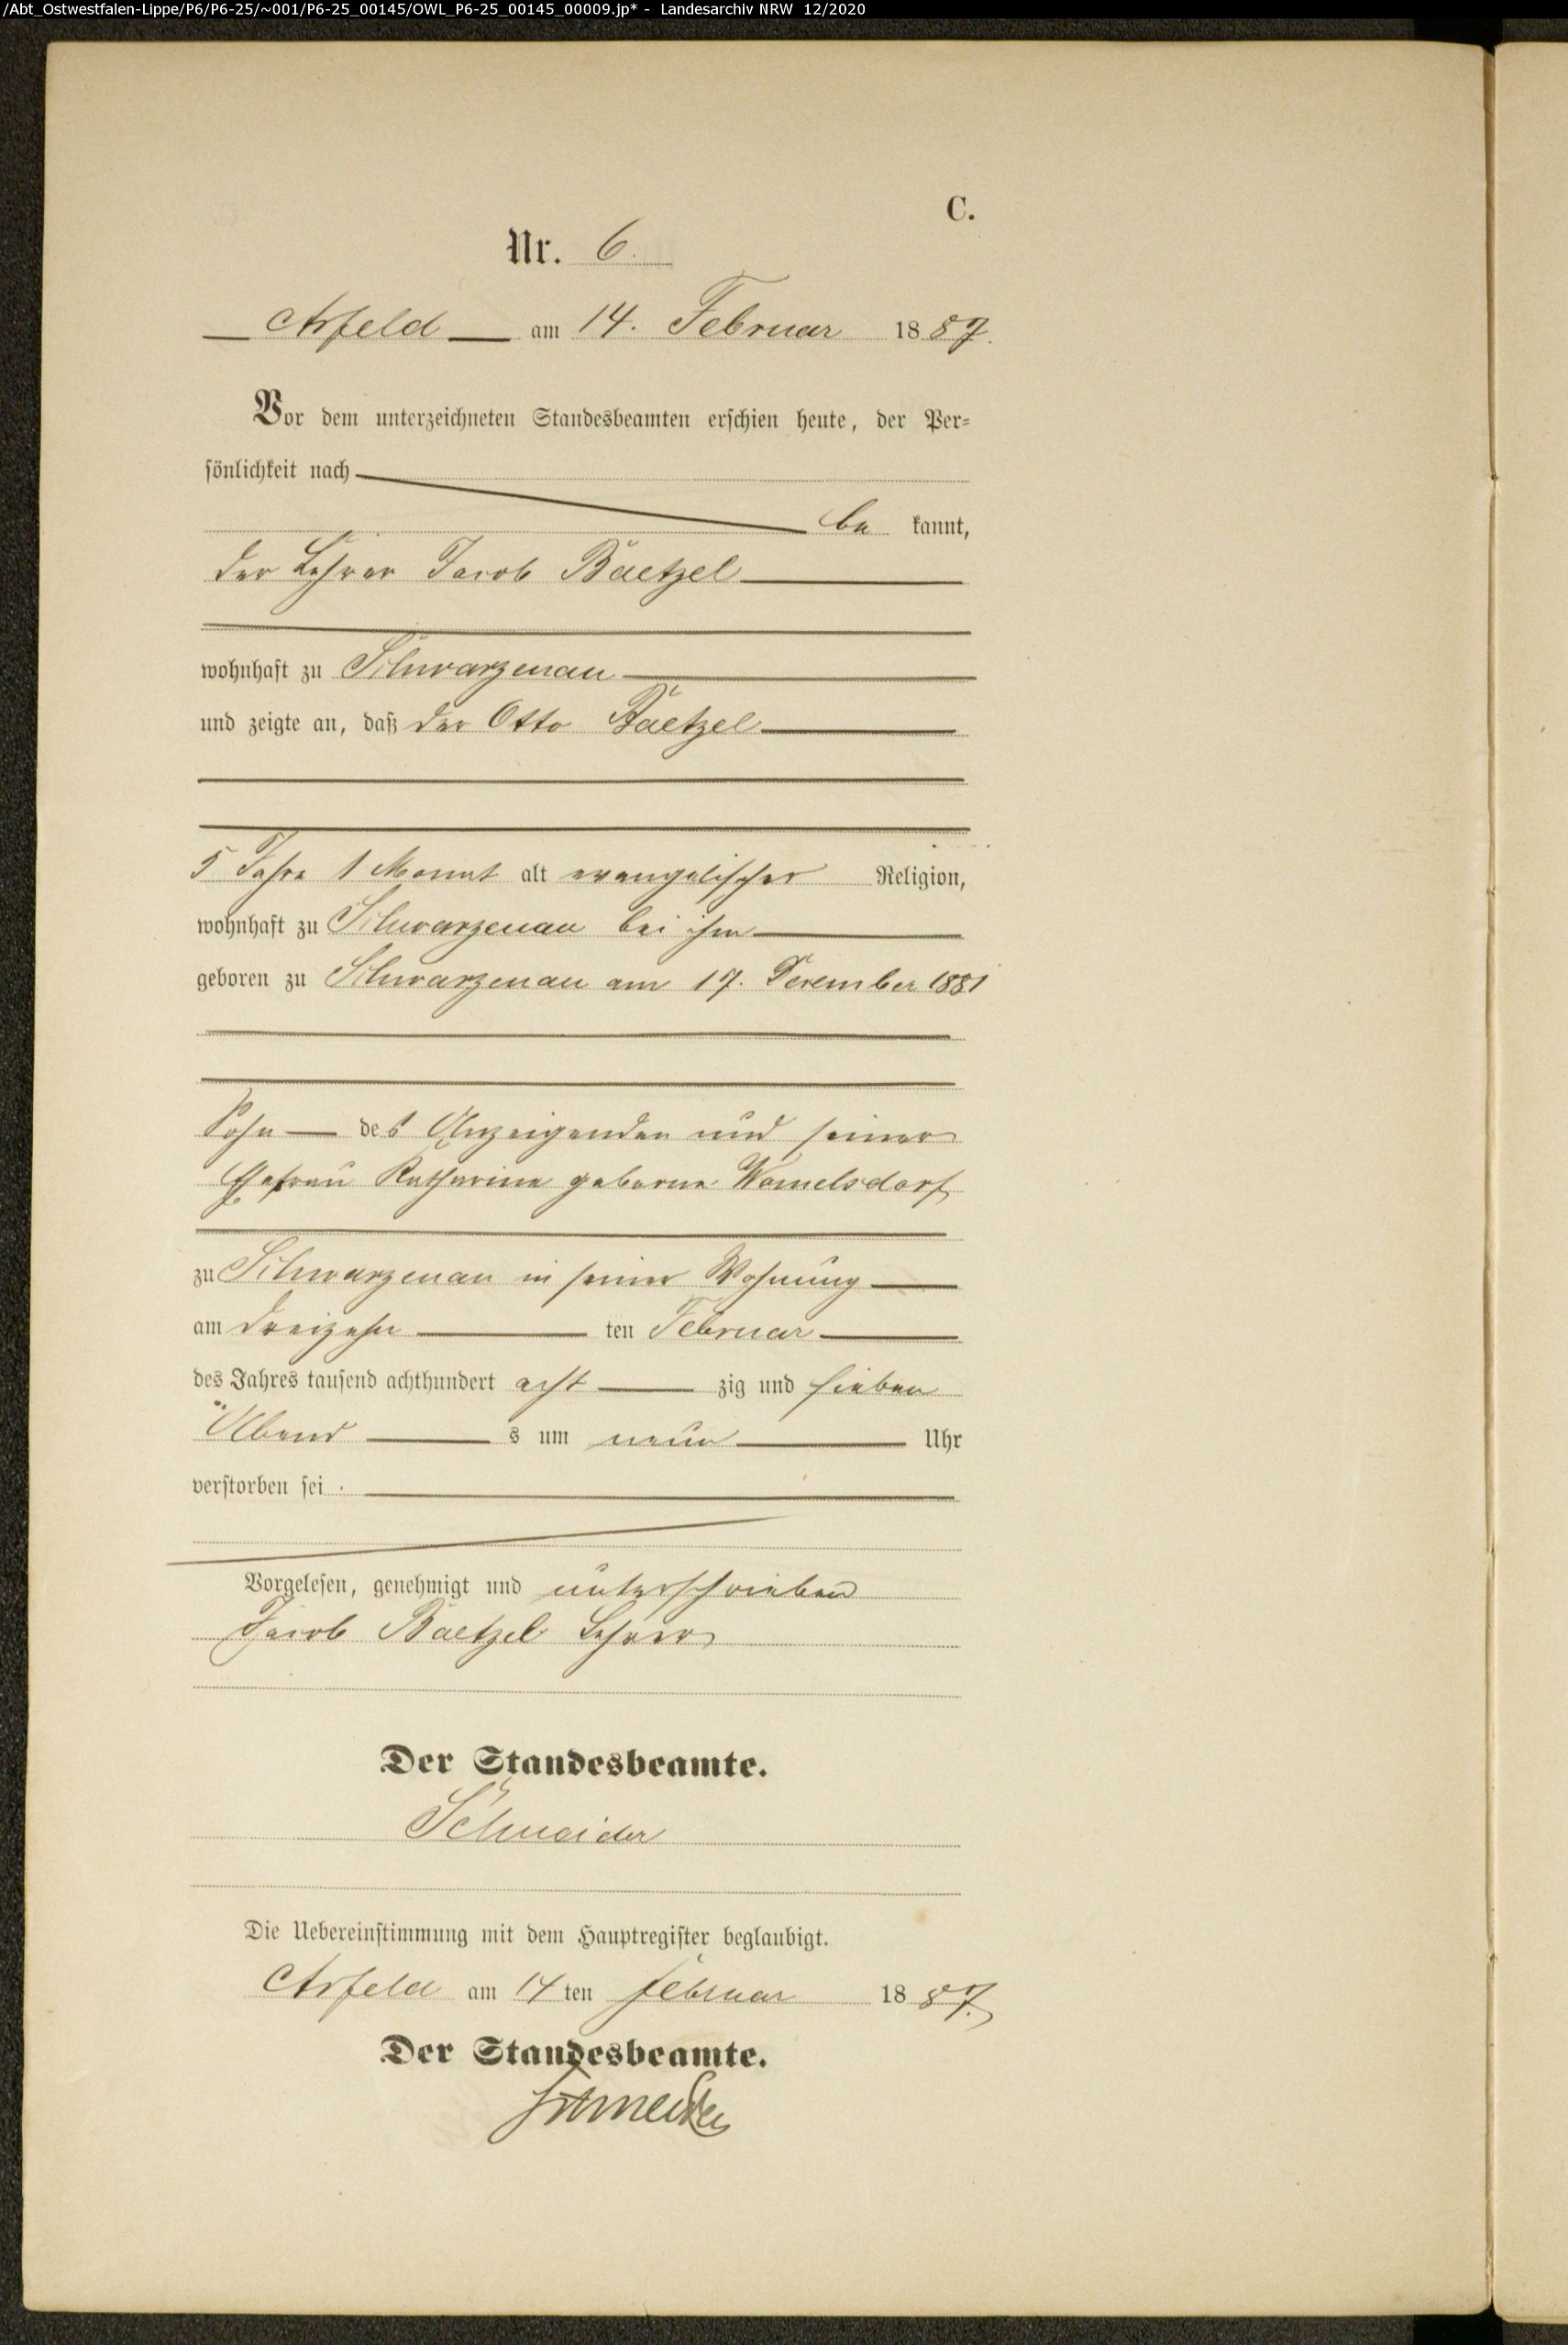 /Abt_Ostwestfalen-Lippe/P6/P6-25/~001/P6-25_00145/OWL_P6-25_00145_00009.jp* - Landesarchiv NRW 12/2020
C.
Nr. 6.
Arfeld am 14. Februar 1887.
Vor dem unterzeichneten Standesbeamten erschien heute, der Per-
sönlichkeit nach
be kannt,
der Lehrer Jacob Baetzel
wohnhaft zu Schwarzenau
und zeigte an, daß der Otto Baetzel
5 Jahre 1 Monat alt evangelischer Religion,
wohnhaft zu Schwarzenau bei ihm
geboren zu Schwarzenau am 17. Dezember 1881
Sohn des Anzeigenden und seiner
Ehefrau Katharina geborne Womelsdorf
zu Schwarzenau in seiner Wohnung
am dreizehn ten Februar
des Jahres tausend achthundert acht zig und sieben
Abend s um neun Uhr
verstorben sei.
Vorgelesen, genehmigt und unterschrieben
Jacob Baetzel Lehrer
Der Standesbeamte.
Schneider
Die Uebereinstimmung mit dem Hauptregister beglaubigt.
Arfeld am 14 ten Februar 1887.
Der Standesbeamte.
Schneider